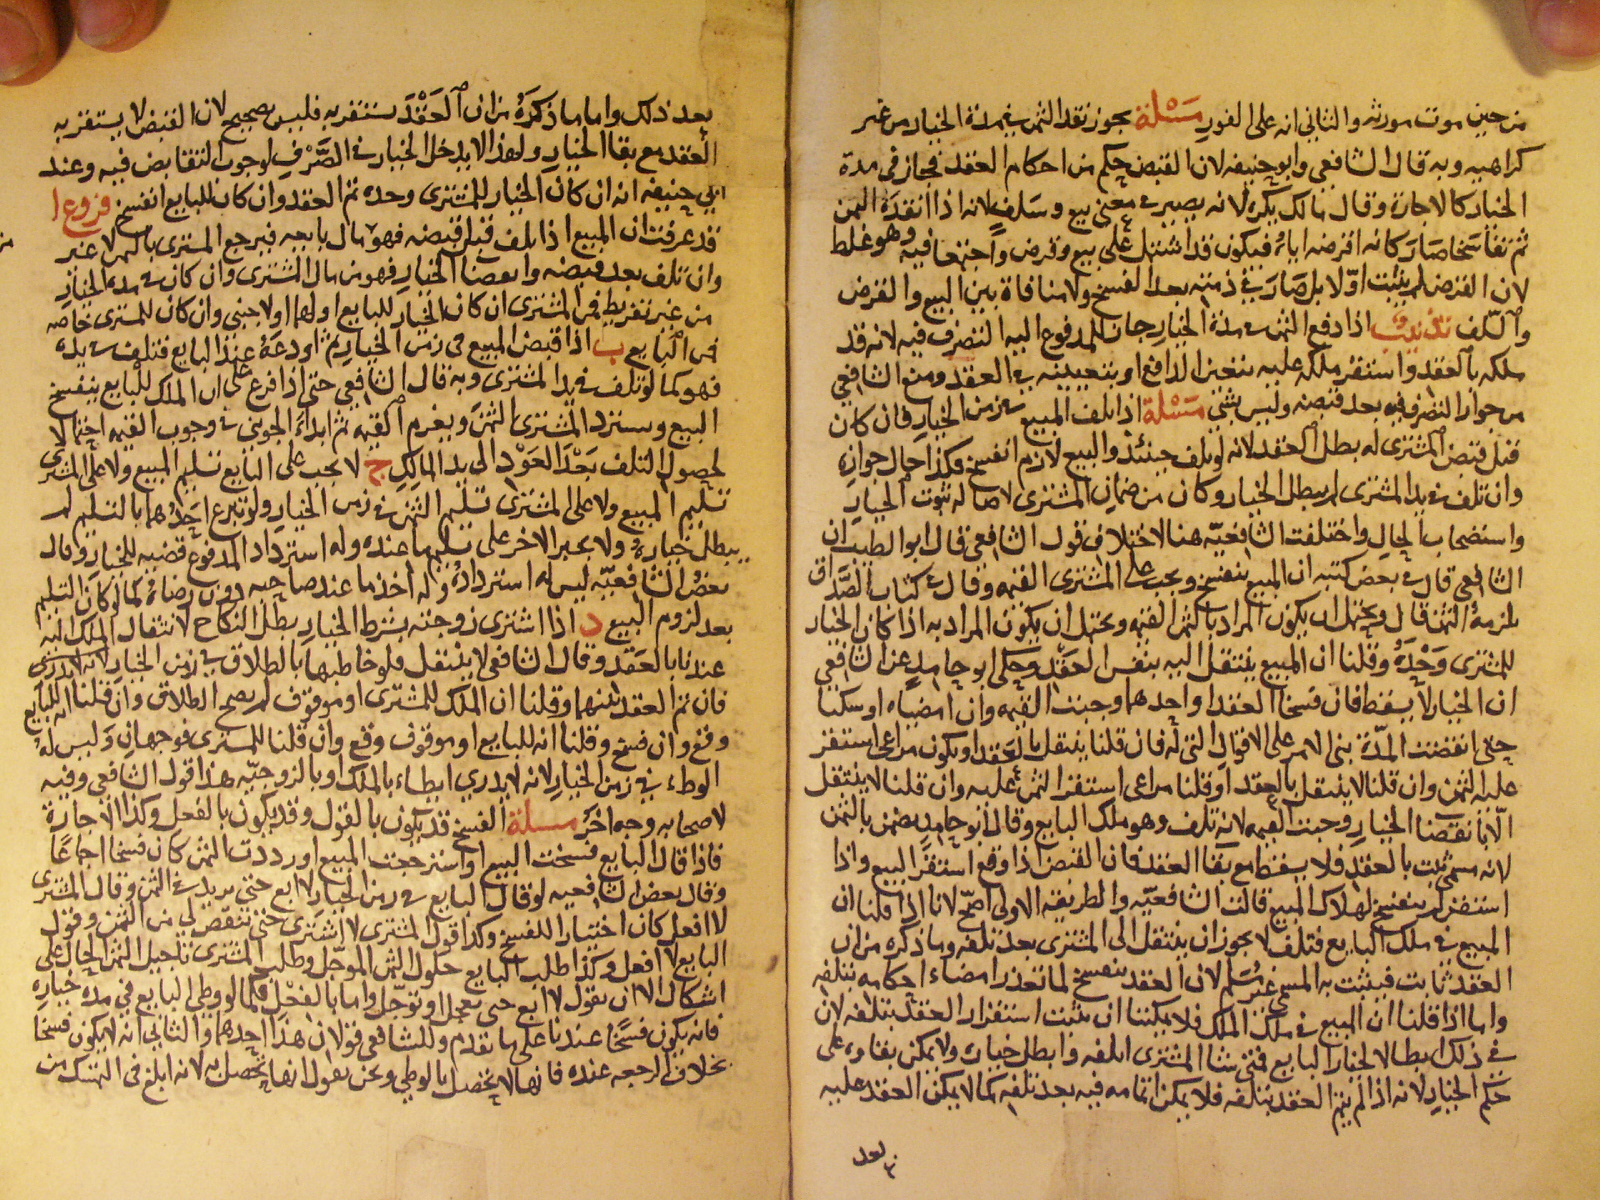 من حين موت مورثه والثاني انه على الفور مسئلة يجوز نقد الثمن في مدة الخيار من غير
كراهيه وبه قال الشافعي وابو حنيفه لان القبض حكم من احكام العقد فجاز في مدة
الخيار كالاجارة وقال مالك يكره لانه يصير في معنى بيع وسلف لانه اذا انقده الثمن
ثم تفاسخا صار كانه اقرضه اياه فيكون قد اشتمل على بيع وقرض واجتمعا فيه وهو غلط
لان القرض لم يثبت اولا بل صار في ذمته بعد الفسخ ولا منافاة بين البيع والقرض
والسلف تذنيب اذا دفع الثمن في مدة الخيار جان للمدفوع اليه التصرف فيه لانه قد
ملكه بالعقد واستقر ملكه عليه بتعين الدافع او بتعيينه في العقد ومنع الشافعي
من جواز التصرف فيه بعد قبضه وليس بشئ مسئلة اذا تلف المبيع في زمن الخيار فان كان
قبل قبض المشترى له بطل العقد لانه لو تلف حينئذ والبيع لازم انفسخ فكذا حال جوازه
وان تلف في يد المشترى لم يبطل الخيار وكان من ضمان المشترى لاصاله ثبوت الخيار
واستصحاب الحال واختلفت الشافعيه هنا لاختلاف قول الشافعي قال ابو الطيب ان
الشافعي قال في بعض كتبه ان المبيع ينفسخ ويجب على المشترى القيمه وقال في كتاب الصداق
يلزمه الثمن قال ويحتمل ان يكون المراد بالثمن القيمه ويحتمل ان يكون المراد به اذا كان الخيار
للمشترى وحده وقلنا ان المبيع ينتقل اليه بنفس العقد وحكى ابو حامد عن الشافعي
ان الخيار لا يسقط فان فسخا العقد او احدهما وجبت القيمه وان امضياه او سكتا
حتى انقضت المدة بنى الامر على الاقوال التي له فان قلنا ينتقل بالعقد او يكون مراعى استقر
عليه الثمن وان قلنا لا ينتقل بالعقد او قلنا مراعى استقر الثمن عليه وان قلنا لا ينتقل
الا بانقضا الخيار وجبت القيمه لانه تلف وهو ملك البايع وقال ابو حامد يضمن بالثمن
لانه مسمى ثبت بالعقد فلا يسقط مع بقا العقد فان القبض اذا وقع استقر البيع واذا
استقر لم ينفسخ لهلاك المبيع قالت الشافعيه والطريقه الاولى اصح لانا اذا قلنا ان
المبيع في ملك البايع فتلف لا يجوز ان ينتقل الى المشترى بعد تلفه وما ذكره من ان
العقد ثابت فيثبت به المسمى غير مسلم لان العقد ينفسخ لما تعذر امضاء احكامه بتلفه
واما اذا قلنا ان المبيع في ملك الملك فلا يمكننا ان نثبت استقرار العقد بتلفه لان
في ذلك ابطالا لخيار البايع فمتى شا المشترى اتلفه وابطل خياره ولا يمكن بقاوه على
حكم الخيار لانه اذا لم ينبرم العقد بتلفه فلا يمكن اتمامه فيه بعد تلفه كما لا يمكن العقد عليه
بعد
بعد ذلك واما ما ذكره من ان العقد يستقر به فليس بصحيح لان القبض لا يستقر به
العقد مع بقا الخيار ولهذا لا يدخل الخيار في الصرف لوجوب التقابض فيه وعند
ابي حنيفه انه ان كان الخيار للمشترى وحده تم العقد وان كان للبايع انفسخ فروع ا
قد عرفت ان المبيع اذا تلف قبل قبضه فهو مال بايعه فيرجع المشترى بالثمن لا غير
وان تلف بعد قبضه وانقضا الخيار فهو من مال المشترى وان كان في مدة الخيار
من غير تفريط فمن المشترى ان كان الخيار للبايع او لهما او لاجنبي وان كان للمشترى خاصه
فمن البايع ب اذا قبض المبيع في زمن الخيار ثم اودعه عند البايع فتلف في يده
فهو كما لو تلف في يد المشترى وبه قال الشافعي حتى اذا فرع على ان الملك للبايع ينفسخ
البيع ويسترد المشترى الثمن ويغرم القيمه ثم ابداء الجويني في وجوب القيمه احتمالا
لحصول التلف بعد العود الى يد المالك ج لا يجب على البايع تسليم المبيع ولا على المشترى
تسليم المبيع ولا على المشترى تسليم الثمن في زمن الخيار ولو تبرع احدهما بالتسليم لم
يبطل خياره ولا يجبر الاخر على تسليم ما عنده وله استرداد المدفوع قضيه للخيار وقال
بعض الشافعيه ليس له استرداده وله اخذ ما عند صاحبه دون رضاه كما لو كان التسليم
بعد لزوم البيع د اذا اشترى زوجته بشرط الخيار بطل النكاح لانتقال الملك اليه
عندنا بالعقد وقال الشافعي لا ينتقل فلو خاطبها بالطلاق في زمن الخيار
فان تم العقد بينهما وقلنا ان الملك للمشترى او موقوف لم يصح الطلاق وان قلنا انه للبايع
وقع وان فسخ وقلنا انه للبايع او موقوف وقع وان قلنا للمشترى فوجهان وليس له
الوطء في زمن الخيار لانه لا يدري ايطاء بالملك او بالزوجيه هذا قول الشافعي وفيه
لاصحابه وجه اخر مسلة الفسخ قد يكون بالقول وقد يكون بالفعل وكذا الاجازة
فاذا قال البايع فسخت البيع او استرجعت المبيع او رددت الثمن كان فسخا اجماعا
وقال بعض الشافعيه لو قال البايع في زمن الخيار لا ابيع حتى يزيد في الثمن وقال المشترى
لا افعل كان اختيارا للفسخ وكذا قول المشترى لا اشترى حتى تنقص لي من الثمن وقول
البايع لا افعل وكذا طلب البايع حلول الثمن الموجل وطلب المشترى تاجيل الثمن الحال على
اشكال الا ان يقول لا ابيع حتى تعجل او توجل واما بالفعل فكما لو وطئ البايع في مدة خياره
فانه يكون فسخا عندنا على ما تقدم وللشافعي قولان هذا احدهما والثاني انه لا يكون فسخا
بخلاف الرجعه عنده فانها لا تحصل بالوطي ونحن نقول انها تحصل به لانه ابلغ في التمسك من